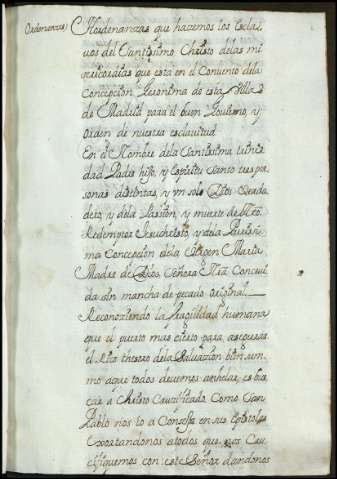 Ordenanzas)
Ordenanzas que hazemos los Escla,
vos del Santissimo Christo delas mi
sericordias que esta en el Convento dela
Concepcion Geronima de esta Villa
de Madrid para el buen Govierno, y
orden de nuestra esclavitud
En el Nombre dela Santissima trini
dad Padre hijo, y Espiritu Santo tres per
sonas distintas, y vn solo Dios verda
dero, y dela Passion, y muerte de Nro.
Redemptor Jesuchristo, y dela Purissi
ma Concepcion dela Virgen Maria
Madre de Dios, Señora Nra. Concevi
da sin mancha de pecado original
Reconociendo la fragilidad humana
que el puerto mas cierto para asegurar
el Rico thesoro dela Salvacion bien sum
mo aque todos devemos anhelar, es bus
car a Christo Crucificado, como San
Pablo nos lo a Conseja en sus Epistolas
Exortandonos atodos que nos Cru
cifiquemos con este Señor dandonos